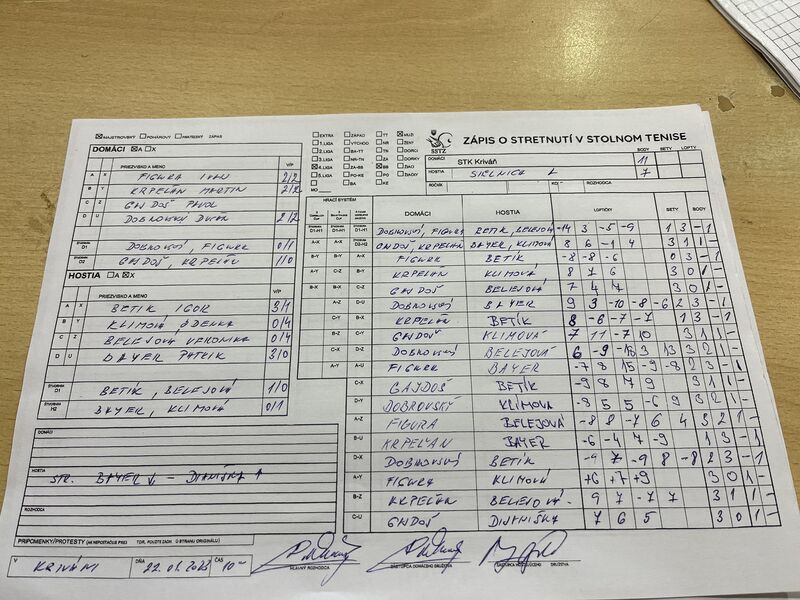 MAJSTROVSKÝ POHÁROVÝ PRIATEĽSKÝ ZÁPAS
EXTRA ZÁPAD TT MUŽI
1. LIGA VÝCHOD NR ŽENY
2. LIGA BA-TT TN DORCI
3. LIGA NR-TN ZA DORKY
4. LIGA ZA-BB BB ŽIACI
5. LIGA PO-KE PO ŽIAČKY
BA KE
MO
SSTZ
ZÁPIS O STRETNUTÍ V STOLNOM TENISE
BODY SETY LOPTY
DOMÁCI STK Kriváň 11
HOSTIA SIELNICA 7
ROČNÍK ROZHODCA
DOMÁCI A X
PRIEZVISKO A MENO V/P
A X FIGURA IVAN 2/2
B Y KRPEĽAN MARTIN 2/2
C Z GAJDOŠ PAVOL
D U DOBROVSKÝ DUŠAN 2/2
ŠTVORHRA D1 DOBROVSKÝ, FIGURA 0/1
ŠTVORHRA D2 GAJDOŠ, KRPEĽAN 1/0
HOSTIA A X
PRIEZVISKO A MENO V/P
A X BETÍK IGOR 3/1
B Y KLIMOVÁ ZDENKA 0/4
C Z BELEJOVÁ VERONIKA 0/4
D U BAYER PATRIK 3/0
ŠTVORHRA D1 BETÍK, BELEJOVÁ 1/0
ŠTVORHRA H2 BAYER, KLIMOVÁ 0/1
HRACÍ SYSTÉM
DOMÁCI HOSTIA LOPTIČKY SETY BODY
D1-H1 D1-H1 DOBROVSKÝ, FIGURA BETIK, BELEJOVÁ -14 3 -5 -9 1 3 - 1
A-X A-X D2-H2 GAJDOŠ, KRPEĽAN BAYER, KLIMOVÁ 8 6 -1 4 3 1 1 -
B-Y B-Y A-X FIGURA BETÍK -8 -8 -6 0 3 - 1
A-Y C-Z B-Y KRPEĽAN KLIMOVÁ 8 7 6 3 0 1 -
B-X B-X C-Z GAJDOŠ BELEJOVÁ 7 4 4 3 0 1 -
A-Z D-U DOBROVSKÝ BAYER 9 3 -10 -8 -6 2 3 - 1
C-Y B-X KRPEĽAN BETÍK 8 -6 -7 -7 1 3 - 1
B-Z C-Y GAJDOŠ KLIMOVÁ 7 11 -7 10 3 1 1 -
C-X D-Z DOBROVSKÝ BELEJOVÁ
A-Y A-U FIGURA BAYER -7 8 15 -9 -8 2 3 - 1
C-X GAJDOŠ BETÍK -9 8 7 9 3 1 1 -
D-Y DOBROVSKÝ KLIMOVA -8 5 5 -6 9 3 2 1 -
A-Z FIGURA BELEJOVÁ -8 8 -7 6 4 3 2 1 -
B-U KRPEĽAN BAYER -6 -4 7 -9 1 3 - 1
D-X DOBROVSKÝ BETÍK -9 7 -9 8 -8 2 3 - 1
A-Y FIGURA KLIMOVÁ +6 +7 +9 3 0 1 -
B-Z KRPEĽAN BELEJOVÁ 9 7 -7 7 3 1 1 -
C-U GAJDOŠ DIANIŠKA 7 6 5 3 0 1 -
DOMÁCI
HOSTIA
STR. BAYER ↓ - DIANIŠKA ↑
ROZHODCA
PRIPOMIENKY/PROTESTY
V KRIVÁNI DŇA 22.01.2023 ČAS 10
HLAVNÝ ROZHODCA ZÁSTUPCA DOMÁCEHO DRUŽSTVA ZÁSTUPCA HOSŤUJÚCEHO DRUŽSTVA